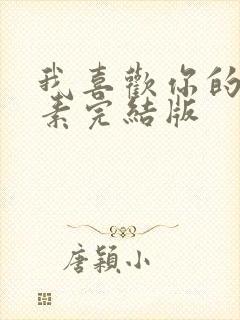 我喜歡你的
素完結版
唐穎小